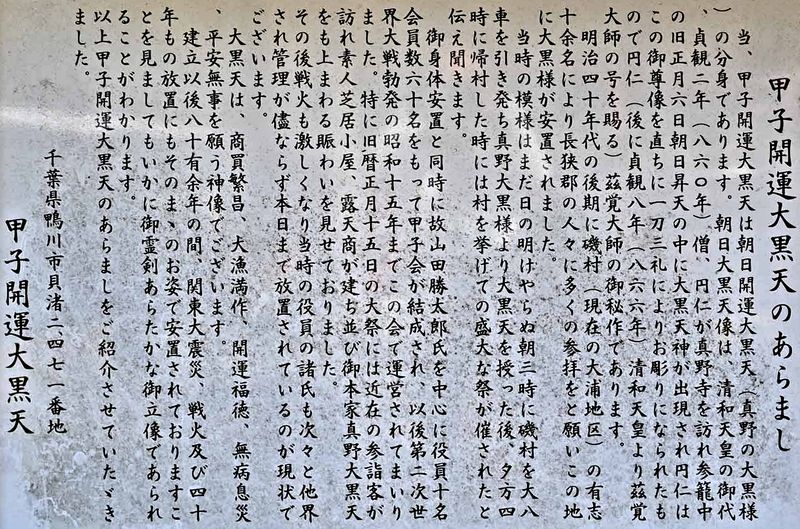 甲子開運大黒天のあらまし
当、甲子開運大黒天は朝日開運大黒天（真野の大黒様
）の分身であります。朝日大黒天像は、清和天皇の御代
、貞観二年（八六〇年）僧、円仁が真野寺を訪れ参籠中
の旧正月六日朝日昇天の中に大黒天神が出現され円仁は
この御尊像を直ちに一刀三礼によりお彫りになられたも
ので円仁（後に貞観八年（八六六年）清和天皇より茲覚
大師の号を賜る）茲覚大師の御秘作であります。
明治四十年代の後期に磯村（現在の大浦地区）の有志
十余名により長狭郡の人々に多くの参拝をと願いこの地
に大黒様が安置されました。
当時の模様はまだ日の明けやらぬ朝三時に磯村を大八
車を引き発ち真野大黒様より大黒天を授った後、夕方四
時に帰村した時には村を挙げての盛大な祭が催されたと
伝え聞きます。
御身体安置と同時に故山田勝太郎氏を中心に役員十名
会員数六十名をもって甲子会が結成され、以後第二次世
界大戦勃発の昭和十五年までこの会で運営されてまいり
ました。特に旧暦正月十五日の大祭には近在の参詣客が
訪れ素人芝居小屋、露天商が建ち並び御本家真野大黒天
をも上まわる賑わいを見せておりました。
その後戦火も激しくなり当時の役員の諸氏も次々と他界
され管理が儘ならず本日まで放置されているのが現状で
ございます。
大黒天は、商買繁昌　大漁満作、開運福徳、無病息災
、平安無事を願う神像でございます。
建立以後八十有余年の間、関東大震災、戦火及び四十
年もの放置にもそのまゝのお姿で安置されておりますこ
とを見ましてもいかに御霊剣あらたかな御立像であられ
ることがわかります。
以上甲子開運大黒天のあらましをご紹介させていたゞき
ました。
千葉県鴨川市貝渚二、四七一番地
甲子開運大黒天